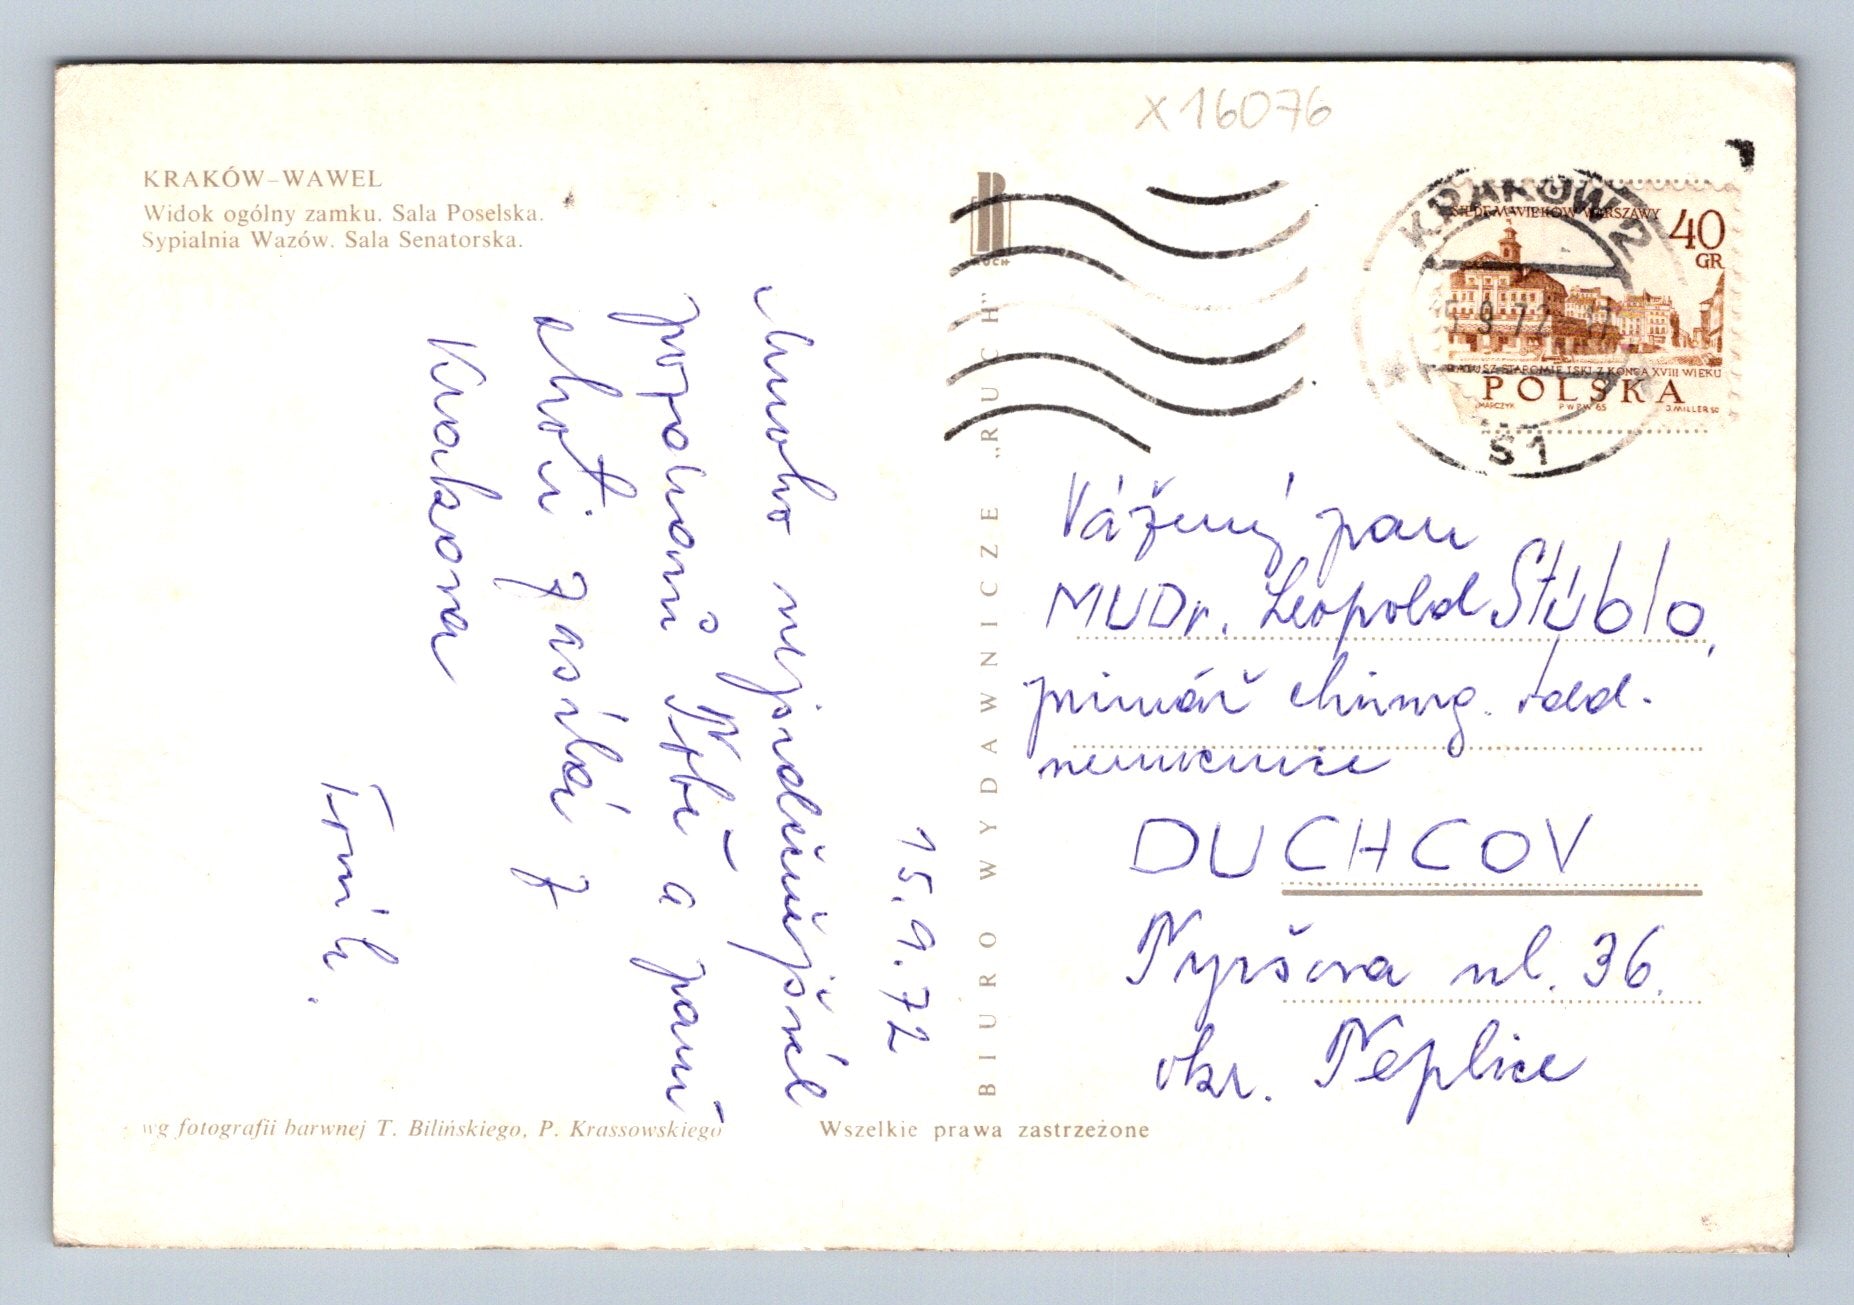 X16076
KRAKÓW–WAWEL
Widok ogólny zamku. Sala Poselska.
Sypialnia Wazów. Sala Senatorska.
15.9.72
Mnoho nejsrdečnějších
pozdravů Tobě a paní
choti zasílá z
Krakova
BIURO WYDAWNICZE „RUCH”
KRAKÓW 2
9 72
S1
SIEDEM WIEKÓW WARSZAWY
40
GR
RATUSZ STAROMIEJSKI Z KOŃCA XVIII WIEKU
POLSKA
PWPW 65
J.MILLER SC
Vážený pan
MUDr. Leopold Stúblo,
primář chirurg. odd.
nemocnice
DUCHCOV
Tyršova ul. 36.
okr. Teplice
wg fotografii barwnej T. Bilińskiego, P. Krassowskiego
Wszelkie prawa zastrzeżone